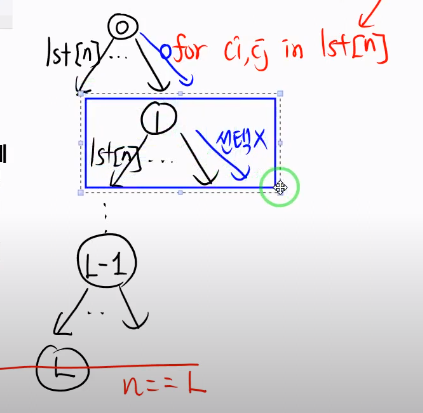 0
lst[n] ... for ci,cj in lst[n]
1
lst[n] ...
L-1
..
L
n==L